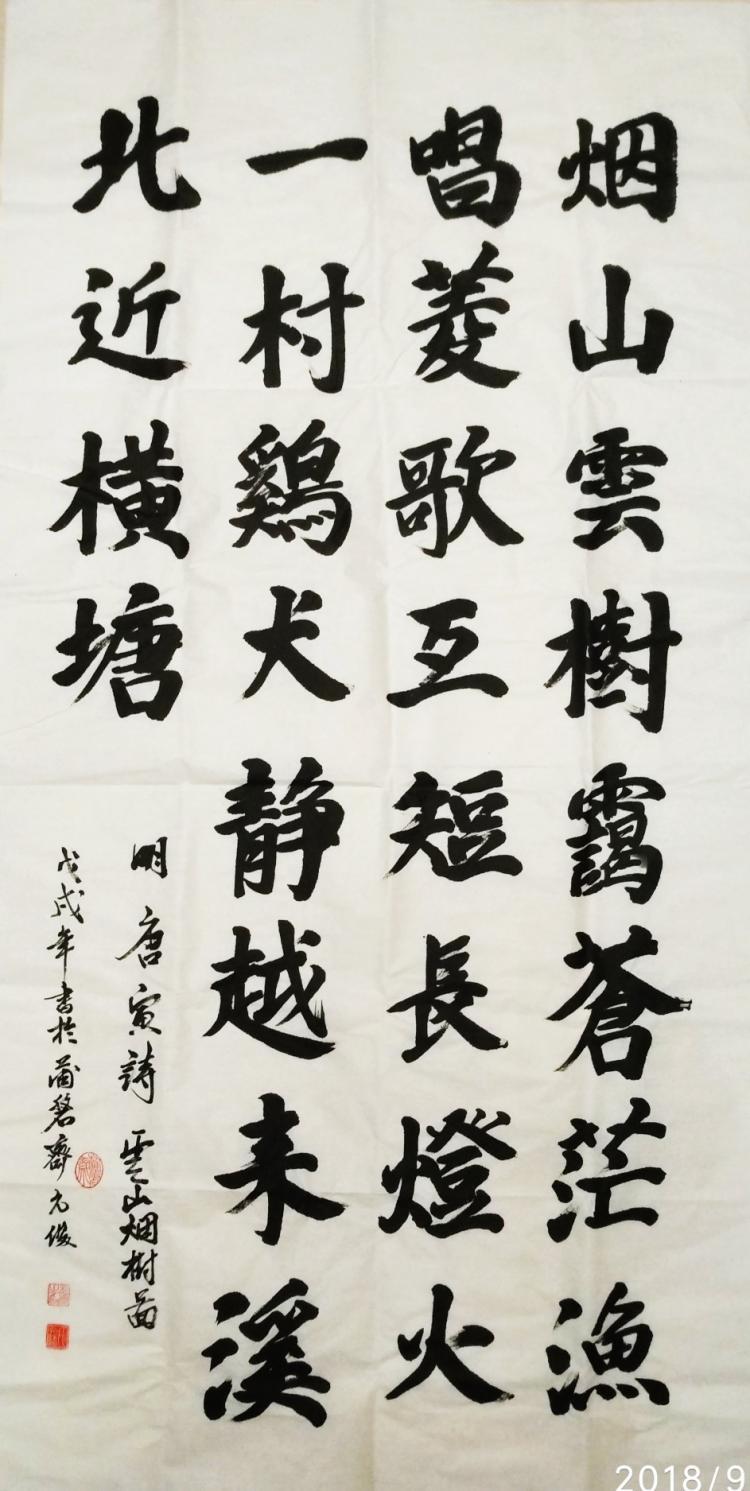 烟山雲樹靄蒼茫漁
唱菱歌互短長燈火
一村鷄犬静越来溪
北近横塘
明唐寅詩雲山烟樹圖
戊戌年書於蒲磐齋元俊
2018/9